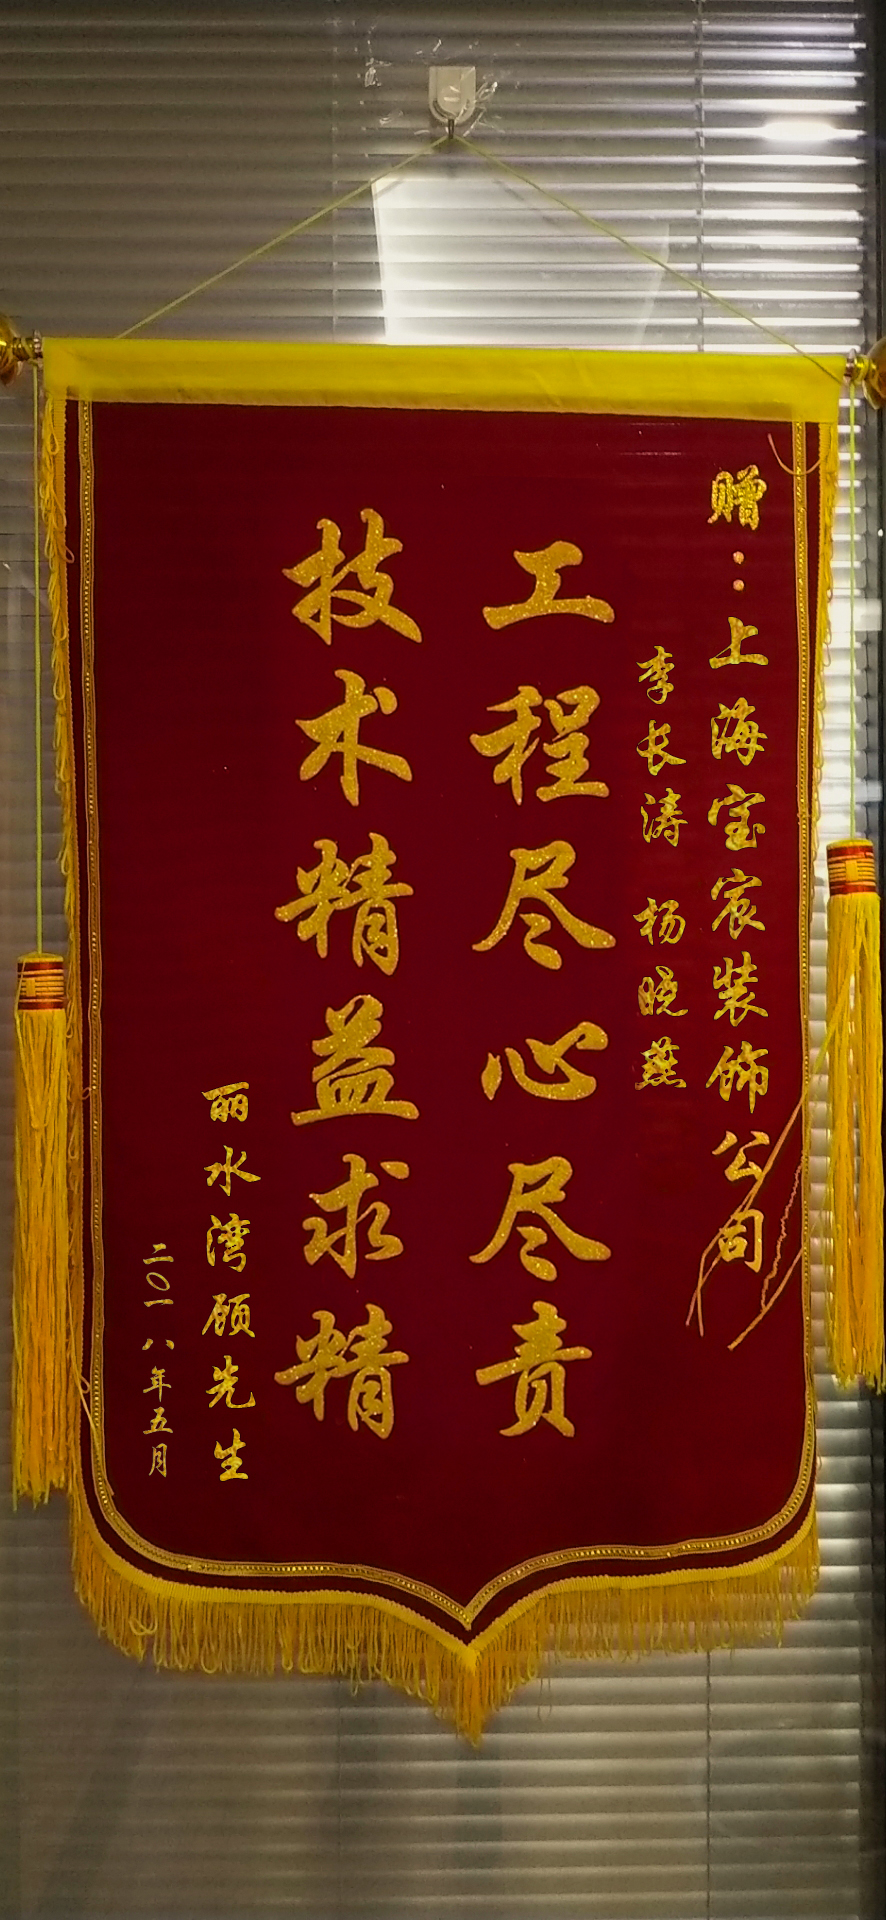 赠：上海宝宸装饰公司
李长涛 杨晓燕
工程尽心尽责
技术精益求精
丽水湾顾先生
二〇一八年五月